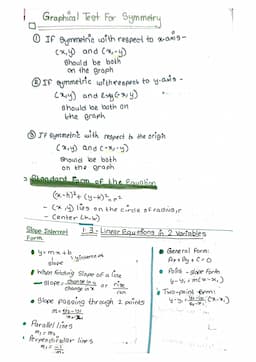 Graphical Test For Symmetry
① If symmetric with respect to x-axis -
(x,y) and (x,-y)
should be both
on the graph
② If symmetric with respect to y-axis -
(x,y) and (-x,y)
should be both on
the graph
③ If symmetric with respect to the origin
(x,y) and (-x,-y)
should be both
on the graph
Standard Form of the Equation
(x-h)²+(y-k)²=r²
- (x,y) lies on the circle of radius, r
- Center (h,k)
Slope Intercept
Form
1.3 - Linear Equations in 2 Variables
• y = mx+b
slope
y intercept
• When finding slope of a line
- slope = change in y / change in x or rise / run
• Slope passing through 2 points
• Parallel lines
m₁ = m₂
• Perpendicular lines
• General Form:
Ax+By+C=0
• Point-slope form
y-y₁=m(x-x₁)
• Two-point form: